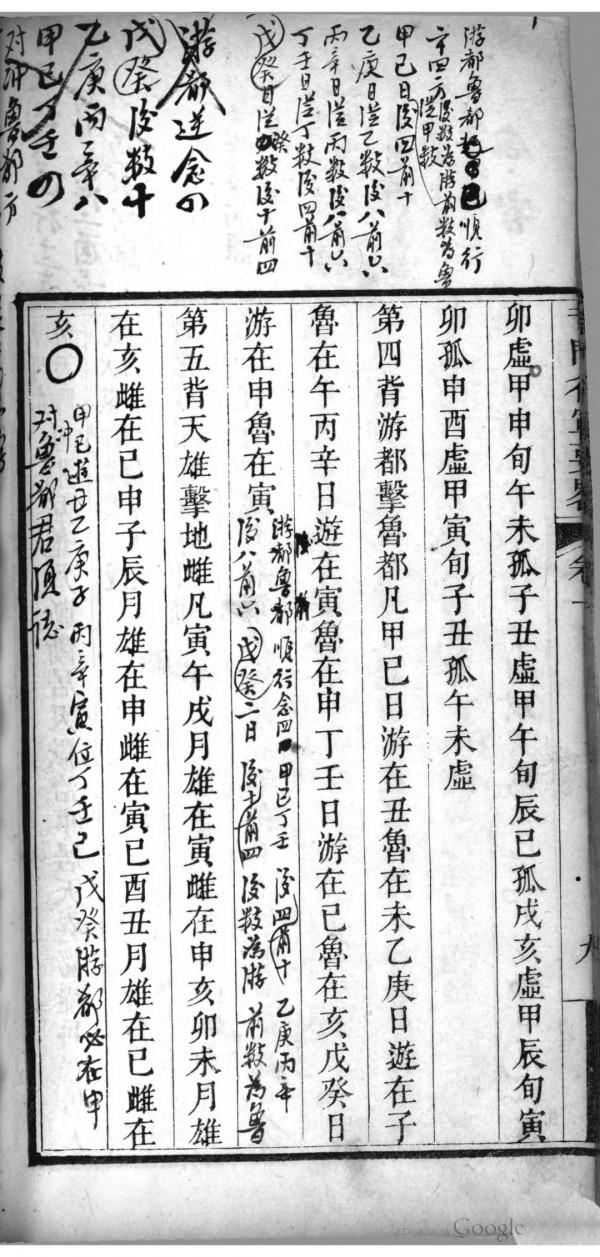 游都魯都
順行
二十四方後数為游前数為魯
從甲数
甲己日後四前十
乙庚日從乙数後八前六
丙辛日從丙数後八前六
丁壬日從丁数後四前十
戊癸日從癸数後十前四
游都逆念四
戊癸後数十
乙庚丙辛八
甲己丁壬四
对冲魯都方
卯虛甲申旬午未孤子丑虛甲午旬辰巳孤戌亥虛甲辰旬寅
卯孤申酉虛甲寅旬子丑孤午未虛
第四背游都擊魯都凡甲巳日游在丑魯在未乙庚日遊在子
魯在午丙辛日遊在寅魯在申丁壬日游在巳魯在亥戊癸日
游在申魯在寅
游都魯都順行念四 甲己丁壬 後四前十 乙庚丙辛
後八前六 戊癸二日 後十前四 後数為游 前数為魯
第五背天雄擊地雌凡寅午戌月雄在寅雌在申亥卯未月雄
在亥雌在巳申子辰月雄在申雌在寅巳酉丑月雄在巳雌在
亥〇
甲己遊丑乙庚子丙辛寅位丁壬巳 戊癸游都必在申
对冲魯都君須誌
卷一
九
Digitized by Google